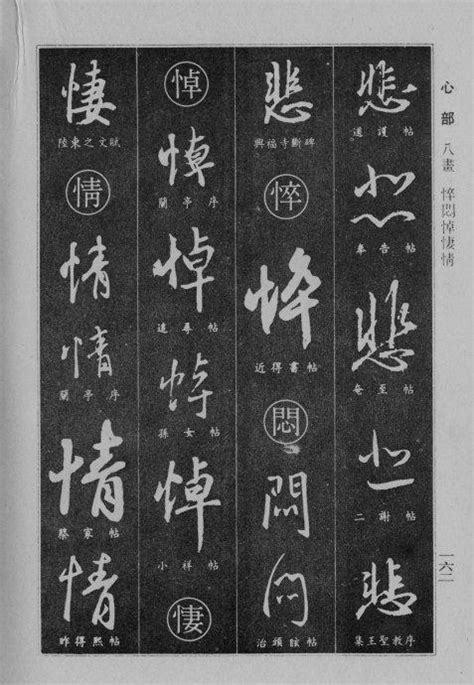 心部 八畫 悴悶悼悽情
一六二
悲
悲
奉告帖
悲
奄至帖
悲
二謝帖
悲
集王聖教序
悲
興福寺斷碑
悴
悴
近得書帖
悶
悶
悶
治頭眩帖
悼
悼
蘭亭序
悼
追尋帖
悼
孫女帖
悼
小祥帖
悽
悽
陸柬之文賦
情
情
情
蘭亭序
情
蔡家帖
情
昨得熙帖